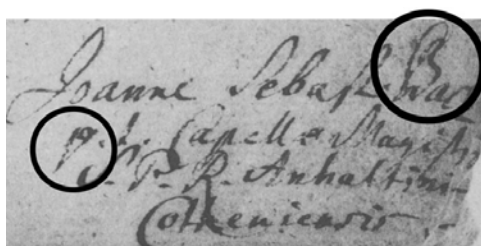 Joanne Sebast. Bach
p. t. Capellæ Magistr
S. P. R. Anhaltini-
Cotheniensis.-